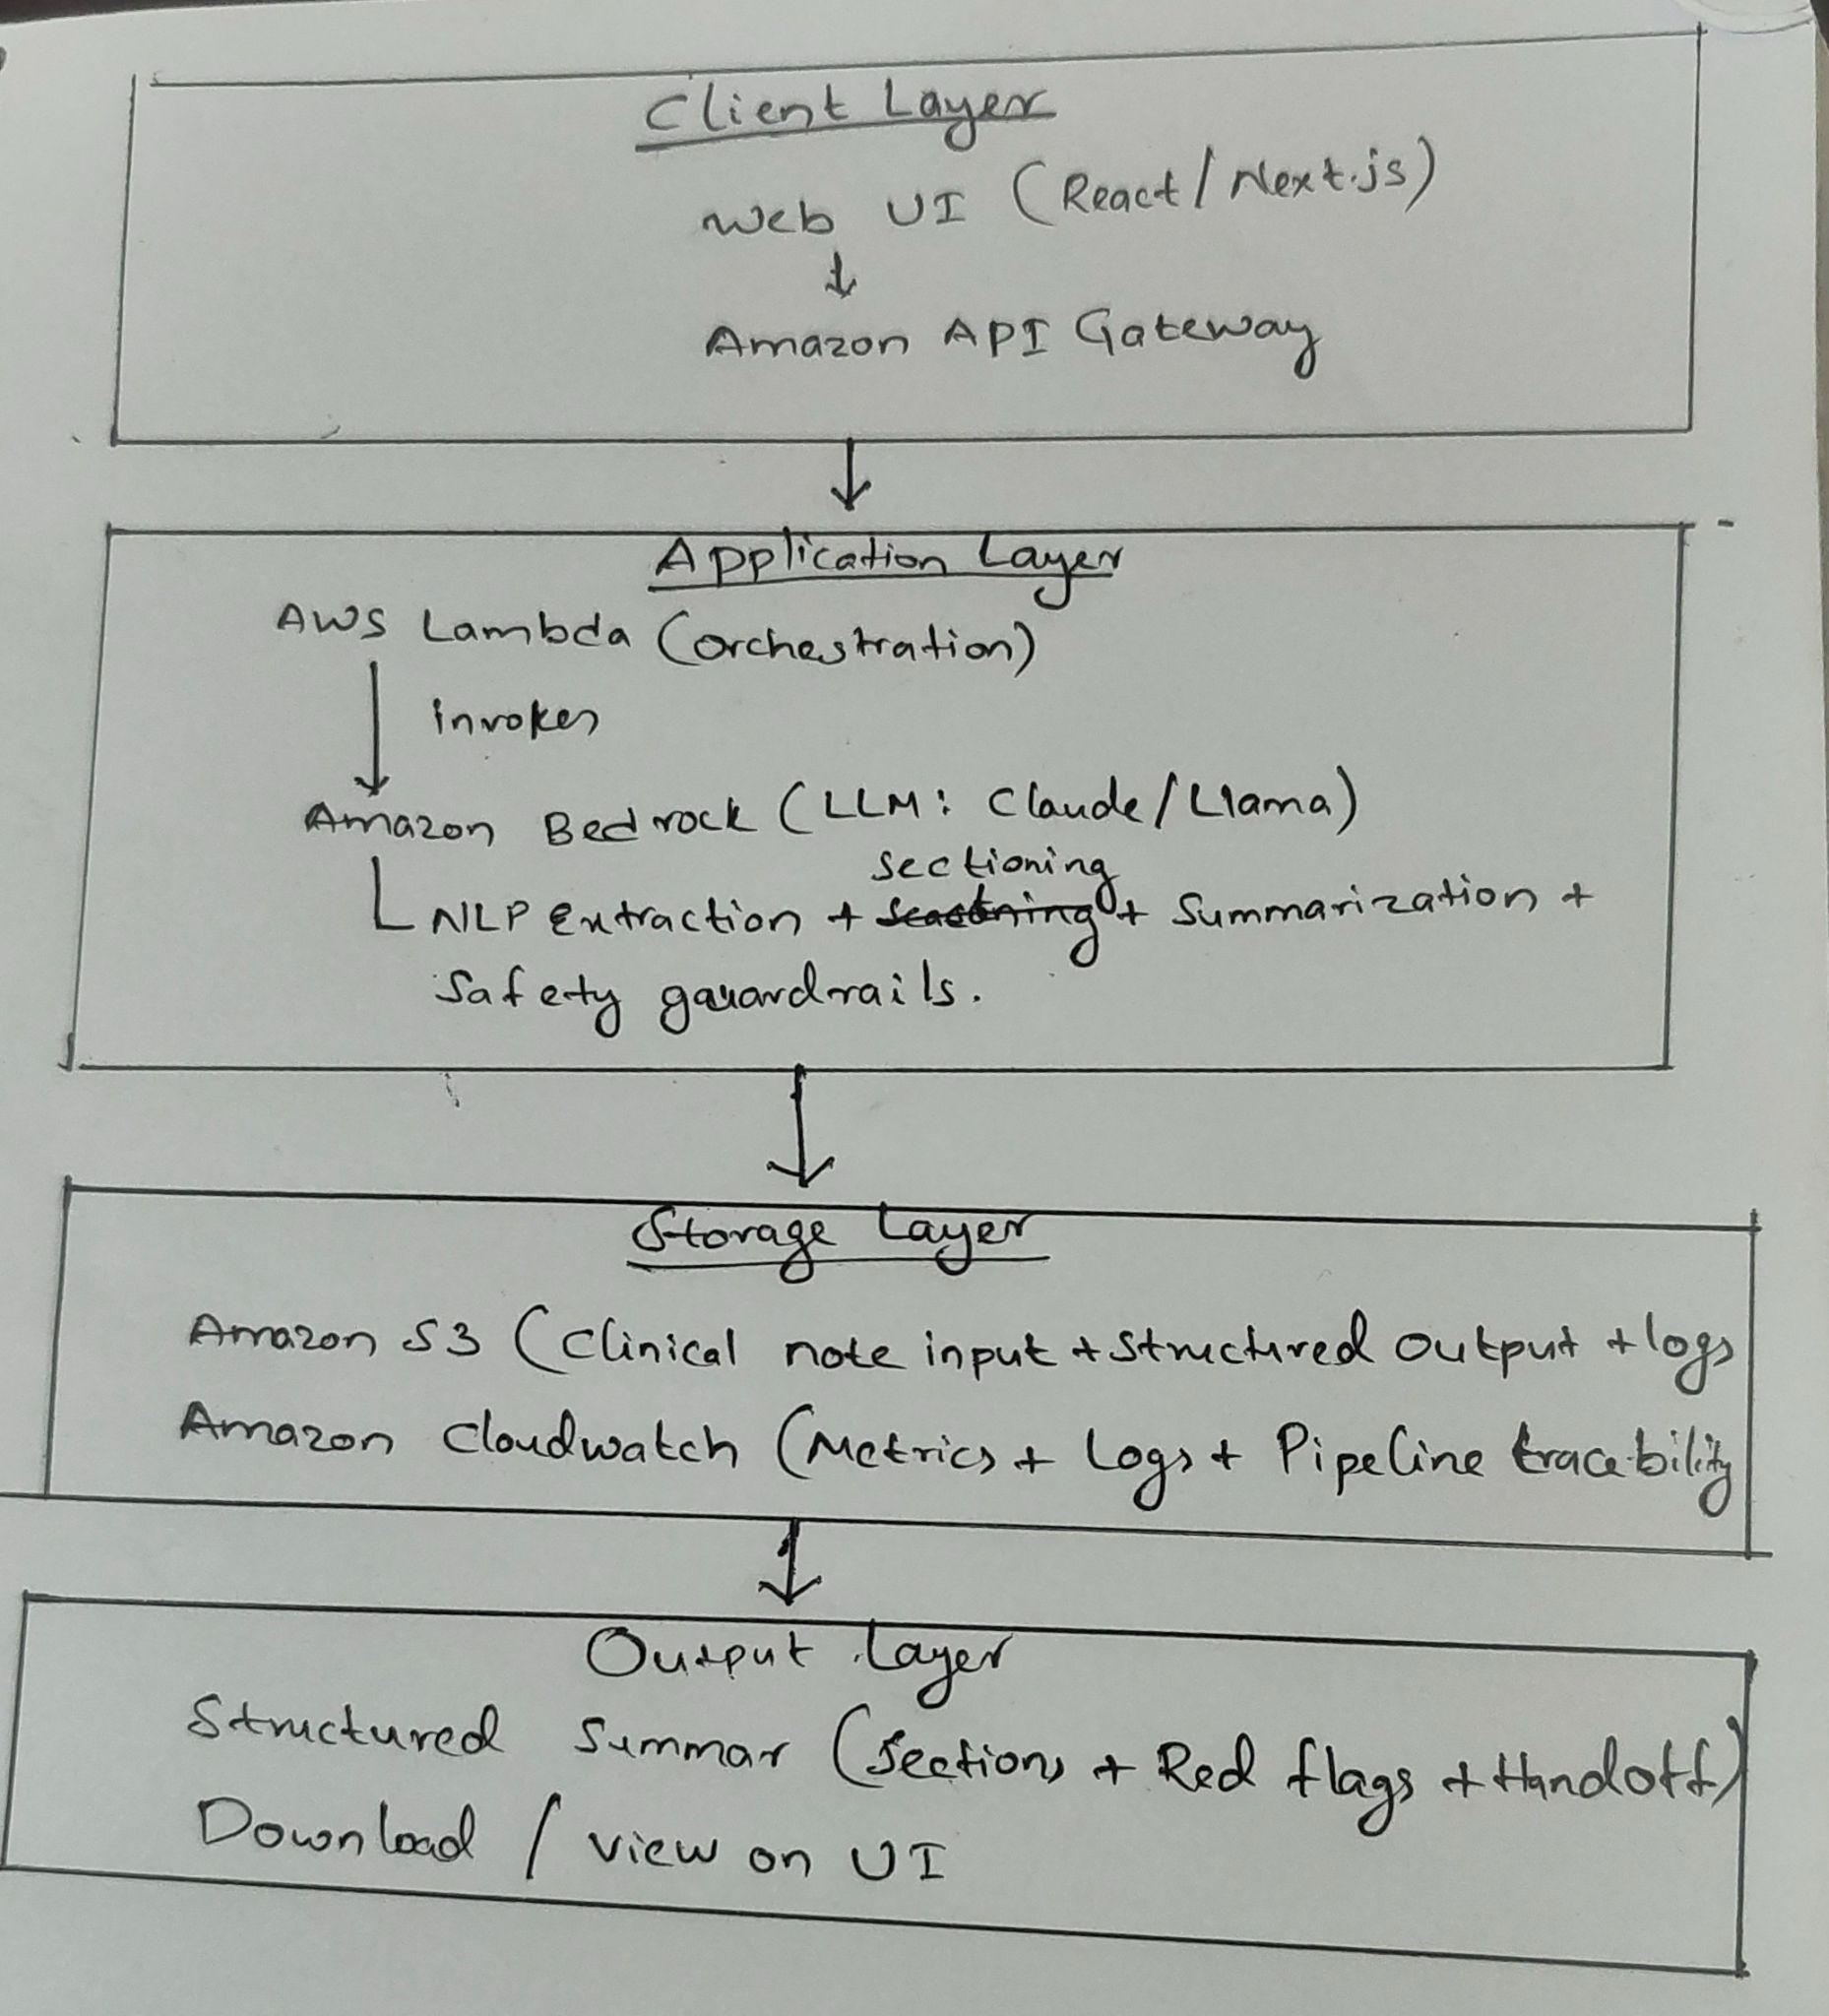 Client Layer
Web UI (React/Next.js)
Amazon API Gateway
Application Layer
AWS Lambda (orchestration)
invokes
Amazon Bedrock (LLM: Claude/Llama)
sectioning
NLP Extraction + + Summarization +
Safety gauardrails.
Storage Layer
Amazon S3 (Clinical note input + Structured output + logs
Amazon Cloudwatch (Metrics + Logs + Pipeline tracebility
Output Layer
Structured Summar (Sections + Red flags + Handoff)
Download / view on UI